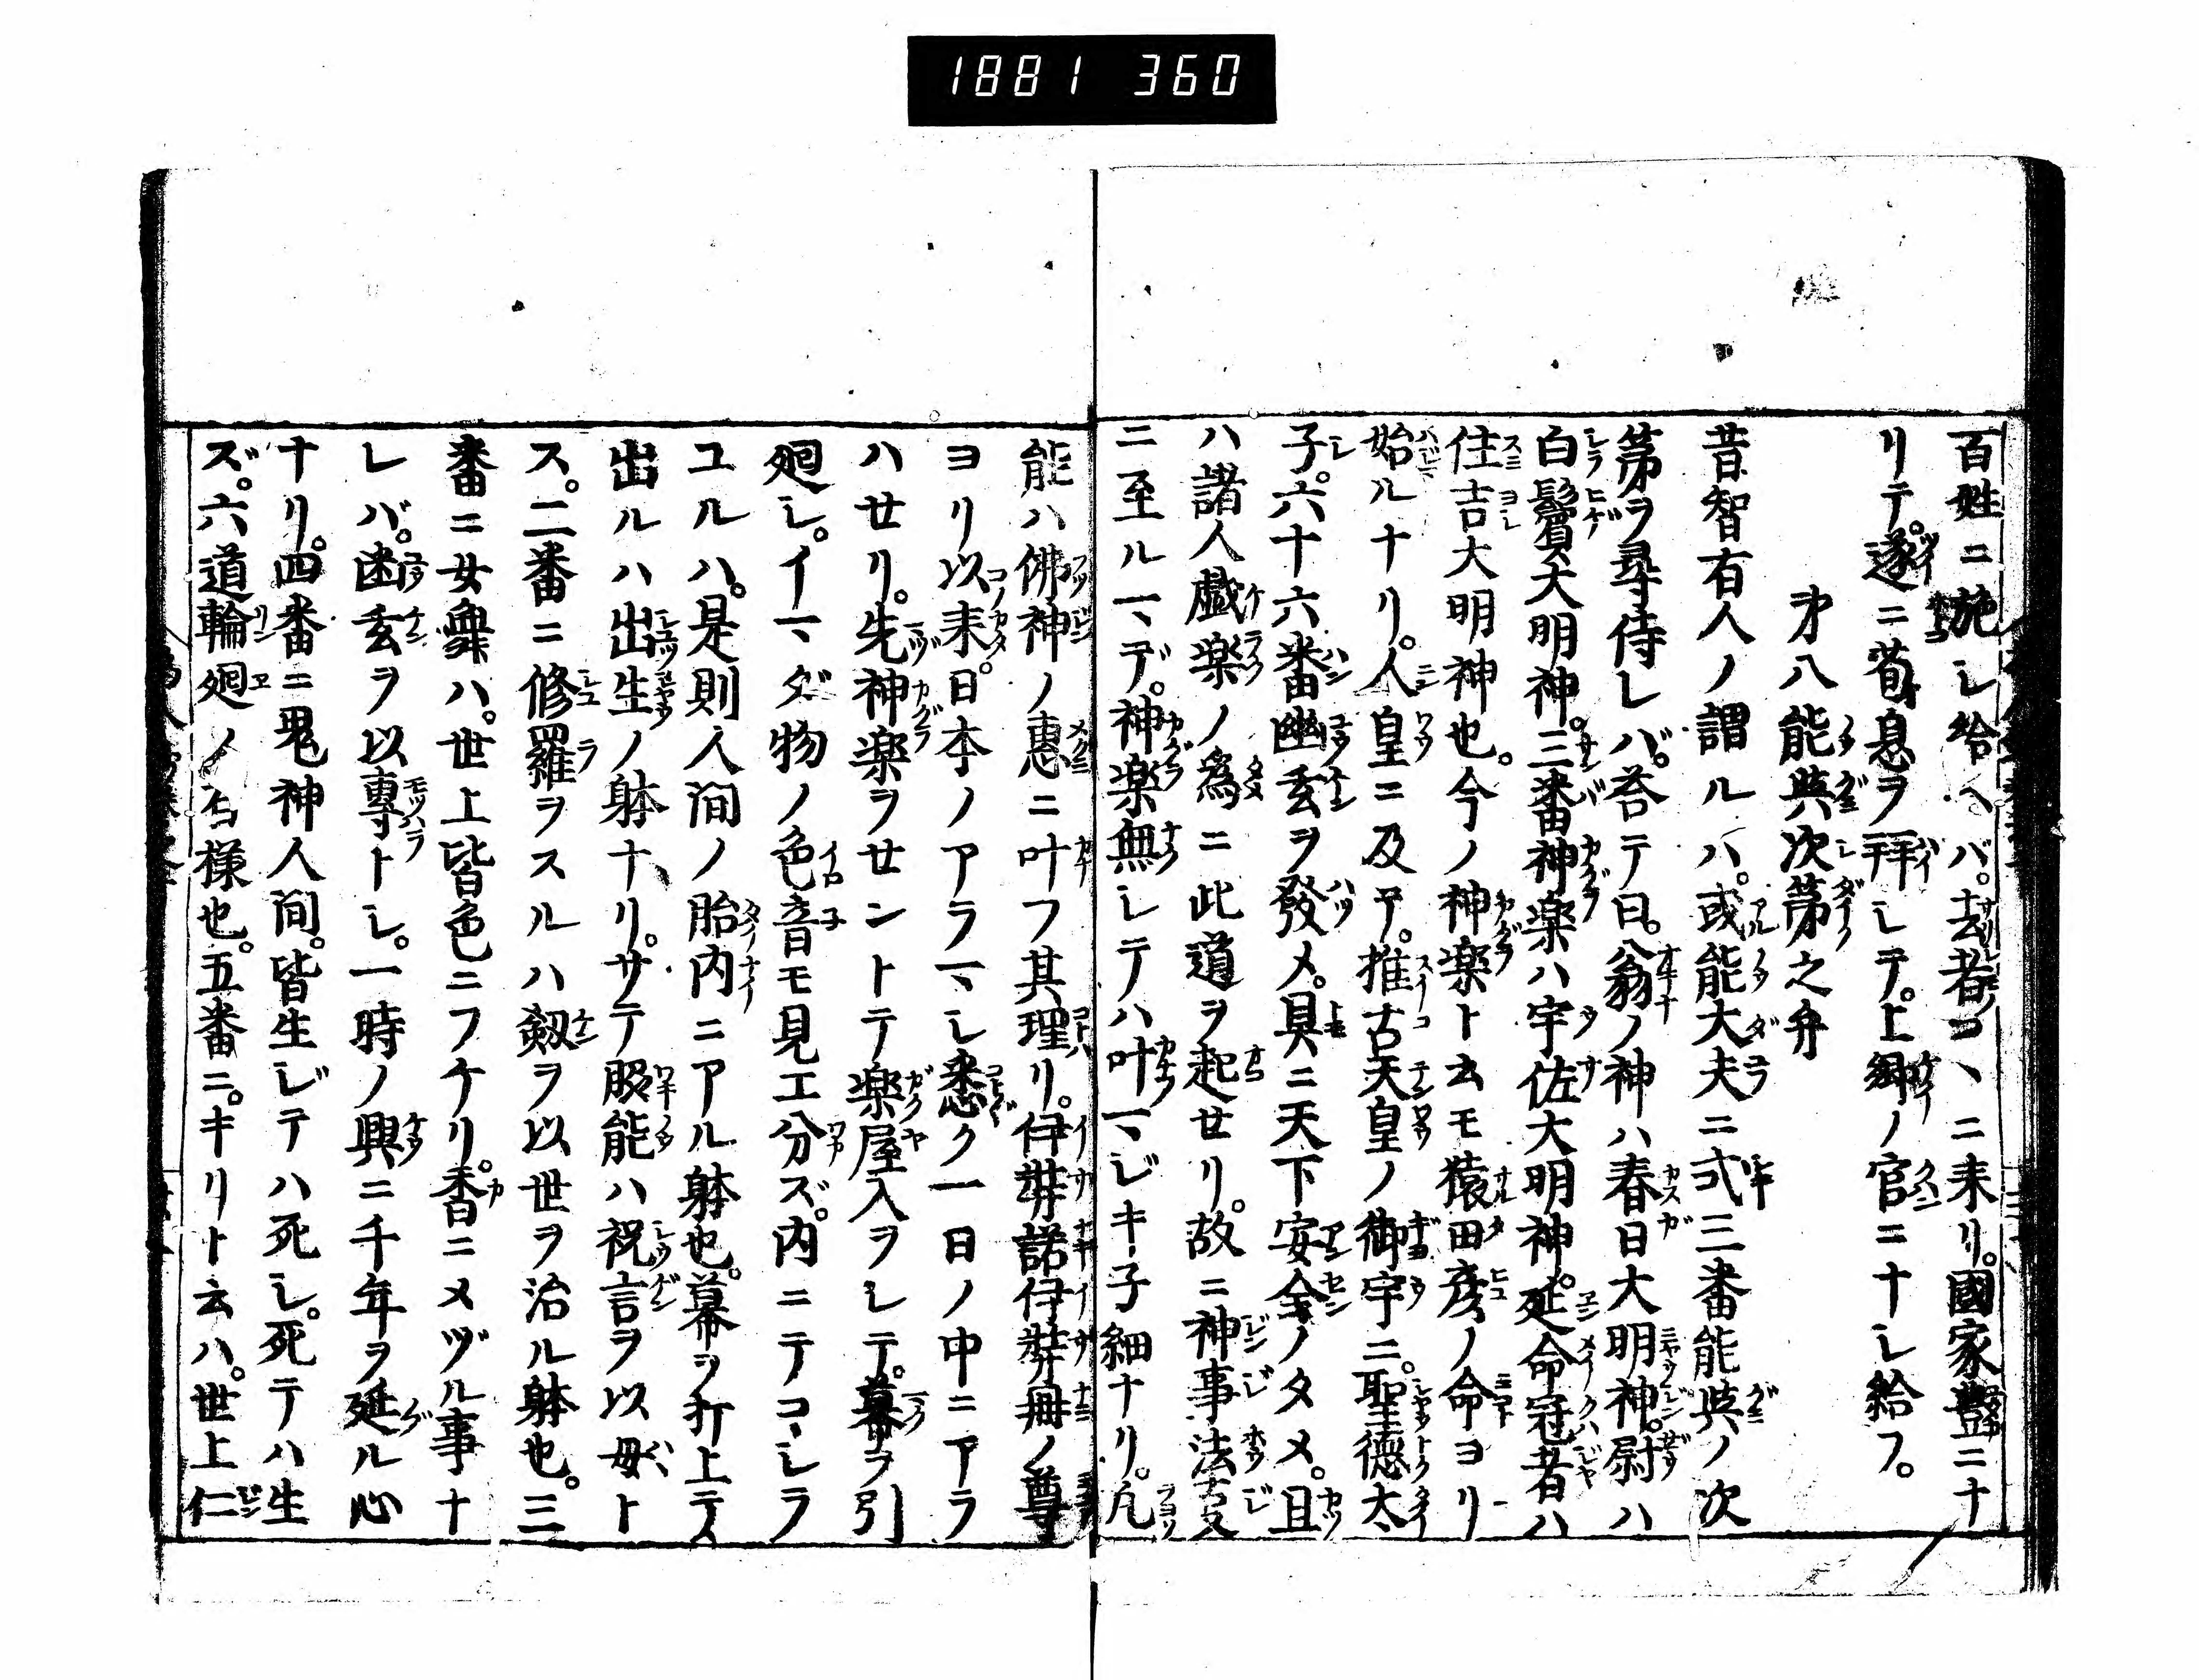 1881 360
百姓ニ施シ給ヘバ。去者コヽニ来リ。國家豊ニナ
リテ。遂ニ荀息ヲ拜シテ。上卿ノ官ニナシ給フ。
才八能與次第之弁
昔智有人ノ謂ルハ。或能大夫ニ式三番能與ノ次
第ヲ尋侍レバ。荅テ曰。翁ノ神ハ春日大明神。尉ハ
白鬚大明神。三番神楽ハ宇佐大明神。延命冠者ハ
住吉大明神也。今ノ神楽ト云モ猿田彦ノ命ヨリ
始ルナリ。人皇ニ及テ。推古天皇ノ御宇ニ。聖徳太
子。六十六番幽玄ヲ發メ。具ニ天下安全ノタメ。且
ハ諸人戯楽ノ為ニ此道ヲ起セリ。故ニ神事法㕝
ニ至ルマデ。神楽無シテハ叶マジキ子細ナリ。凡
能ハ佛神ノ惠ニ叶フ其理リ。伊弉諾伊弉冊ノ尊
ヨリ以来。日本ノアラマシ悉ク一日ノ中ニアラ
ハせリ。先神楽ヲせントテ楽屋入ヲシテ。幕ヲ引
廻シ。イマダ物ノ色音モ見エ分ズ。内ニテコシラ
ユルハ。是則人间ノ胎内ニアル躰也。幕ヲ打上テ
出ルハ出生ノ躰ナリ。サテ脇能ハ祝言ヲ以母ト
ス。二番ニ修羅ヲスルハ釼ヲ以世ヲ治ル躰也。三
番ニ女舞ハ。世上皆色ニフケリ。香ニメヅル事ナ
レバ。幽玄ヲ以專トシ。一時ノ興ニ千年ヲ延ル心
ナリ。四番ニ鬼神人间。皆生ジテハ死シ。死テハ生
ズ。六道輪廻ノ有様也。五番ニ。キリト云ハ。世上仁